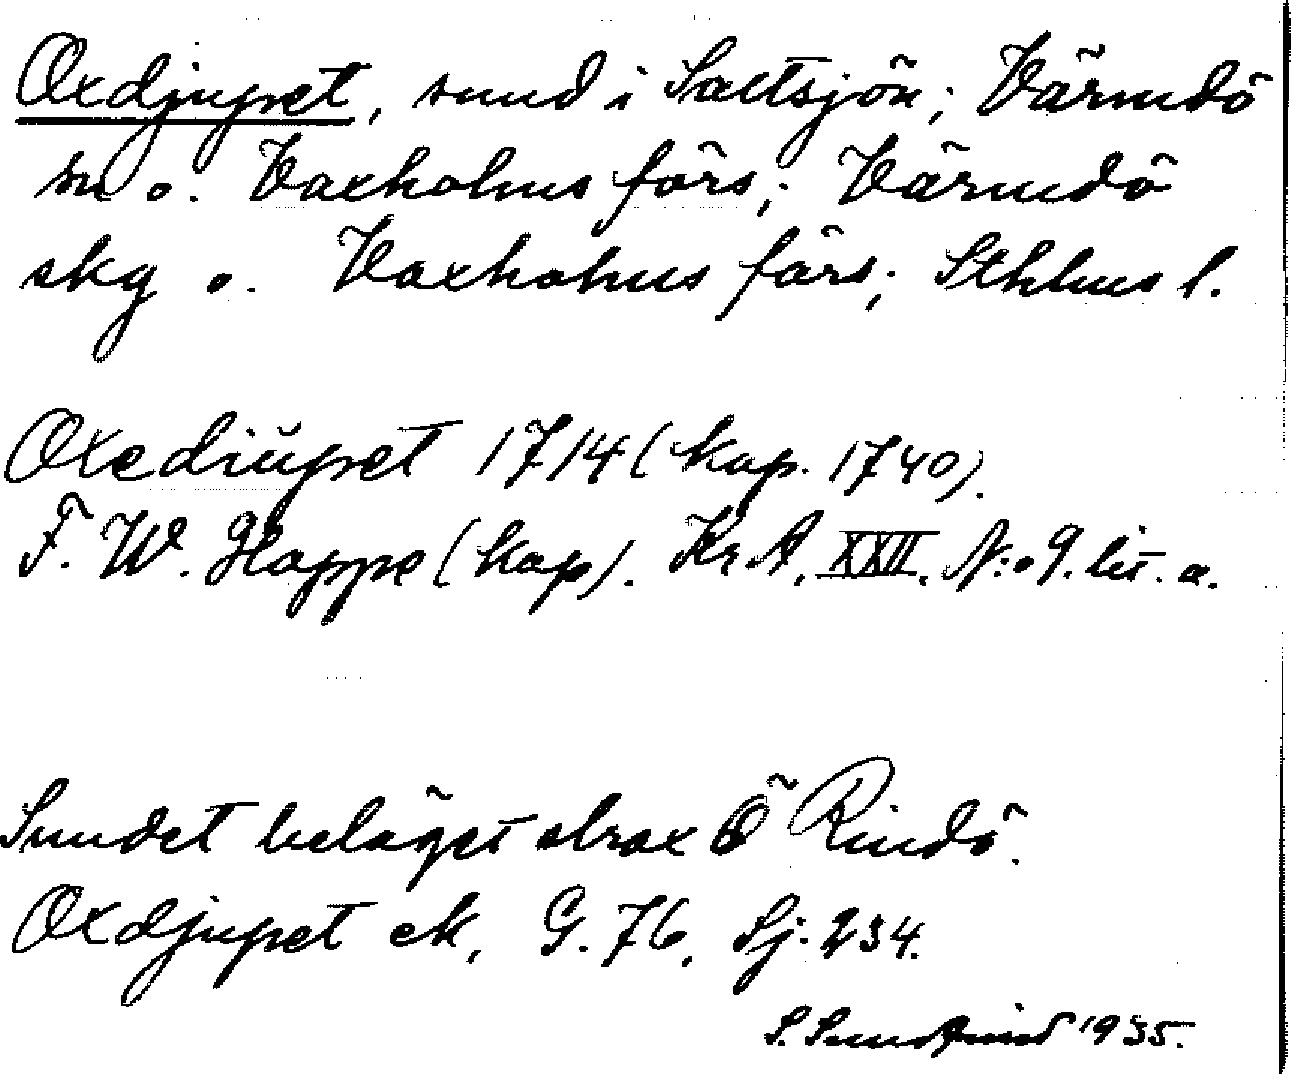 Oxdjupet, sund i Saltsjön; Värmdö
sn o. Vaxholms förs; Värmdö
skg o. Vaxholms förs; Sthlms l.
Oxediŭpet 1714 (kop. 1740).
F. W. Hoppe (kop). Kr A. XXII. N:o 9. lit. a.
Sundet beläget strax Ö Rindö.
Oxdjupet ek, G. 76, Sj. 234.
S. 1935.